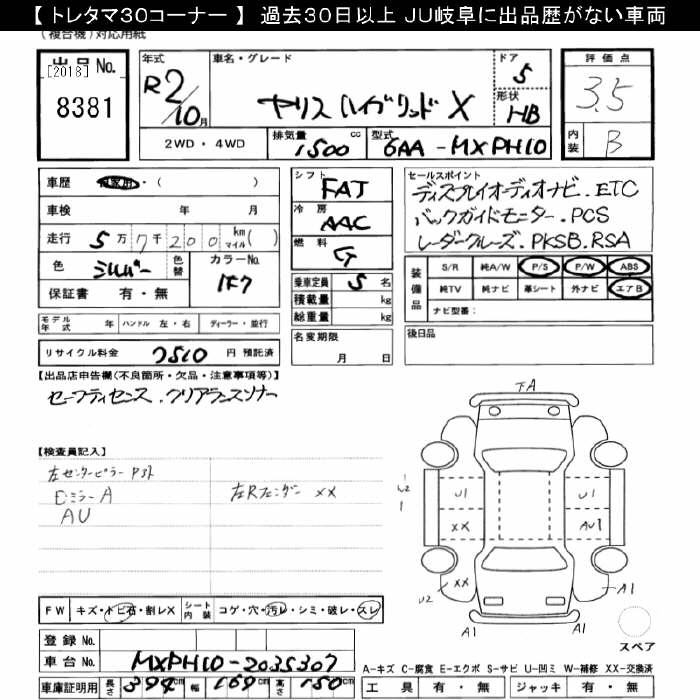 【 トレタマ30コーナー 】 過去30日以上 JU岐阜に出品歴がない車両
(複合機)対応用紙
出品No. [2018] 8381
年式 R2/10月
車名・グレード ヤリス ハイブリッド X
ドア 5
形状 HB
評価点 3.5
内装 B
2WD・4WD
排気量 1500 cc
型式 6AA-MXPH10
車歴 自家用・( )
車検 年 月
走行 5万7千200 km マイル( )
色 シルバー 色替
カラーNo. 1F7
保証書 有・無
シフト FAT
冷房 AAC
燃料 G
乗車定員 5名
積載量 kg
総重量 kg
セールスポイント
ディスプレイオーディオナビ.ETC
バックガイドモニター.PCS
レーダークルーズ.PKSB.RSA
装備品 S/R 純A/W P/S P/W ABS
純TV 純ナビ 革シート 外ナビ エアB
ナビ型番:
モデル年式 年 ハンドル 左・右 ディーラー・並行
名変期限 月 日
後日品
リサイクル料金 7510 円 預託済
【出品店申告欄(不良箇所・欠品・注意事項等)】
セーフティセンス.クリアランスソナー
【検査員記入】
左センターピラー
ミラーA
AU
左Rフェンダー XX
下A
U2
1
U1
U1
XX
AU1
XX
U2
A1
A1
A1
スペア
FW キズ・トビ石・割レX
シート内装 コゲ・穴・汚レ・シミ・破レ・スレ
登録No.
車台No. MXPH10-2035307
車庫証明用 長さ 394cm 幅 169cm 高さ 150cm
A-キズ C-腐食 E-エクボ S-サビ U-凹ミ W-補修 XX-交換済
工具 有・無 ジャッキ 有・無